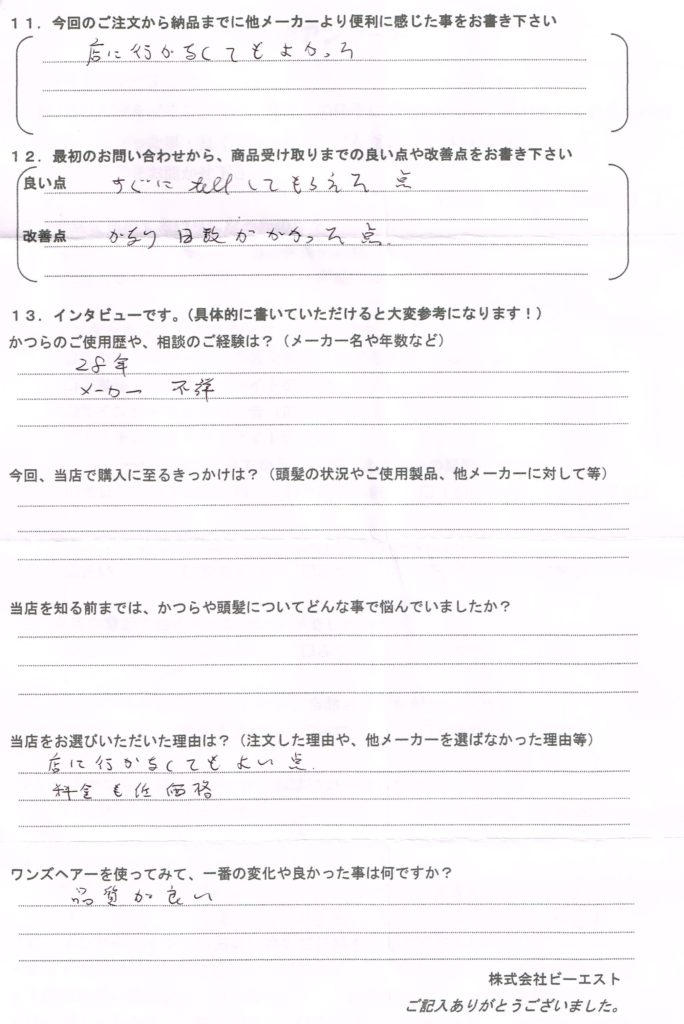 11．今回のご注文から納品までに他メーカーより便利に感じた事をお書き下さい
店に行かなくてもよかった
12．最初のお問い合わせから、商品受け取りまでの良い点や改善点をお書き下さい
良い点 すぐに tell してもらえる 点
改善点 かなり 日数がかかった点.
13．インタビューです。（具体的に書いていただけると大変参考になります！）
かつらのご使用歴や、相談のご経験は？（メーカー名や年数など）
28年
メーカー 不詳
今回、当店で購入に至るきっかけは？（頭髪の状況やご使用製品、他メーカーに対して等）
当店を知る前までは、かつらや頭髪についてどんな事で悩んでいましたか？
当店をお選びいただいた理由は？（注文した理由や、他メーカーを選ばなかった理由等）
店に行かなくてもよい点.
料金も低価格
ワンズヘアーを使ってみて、一番の変化や良かった事は何ですか？
品質が良い
株式会社ビーエスト
ご記入ありがとうございました。